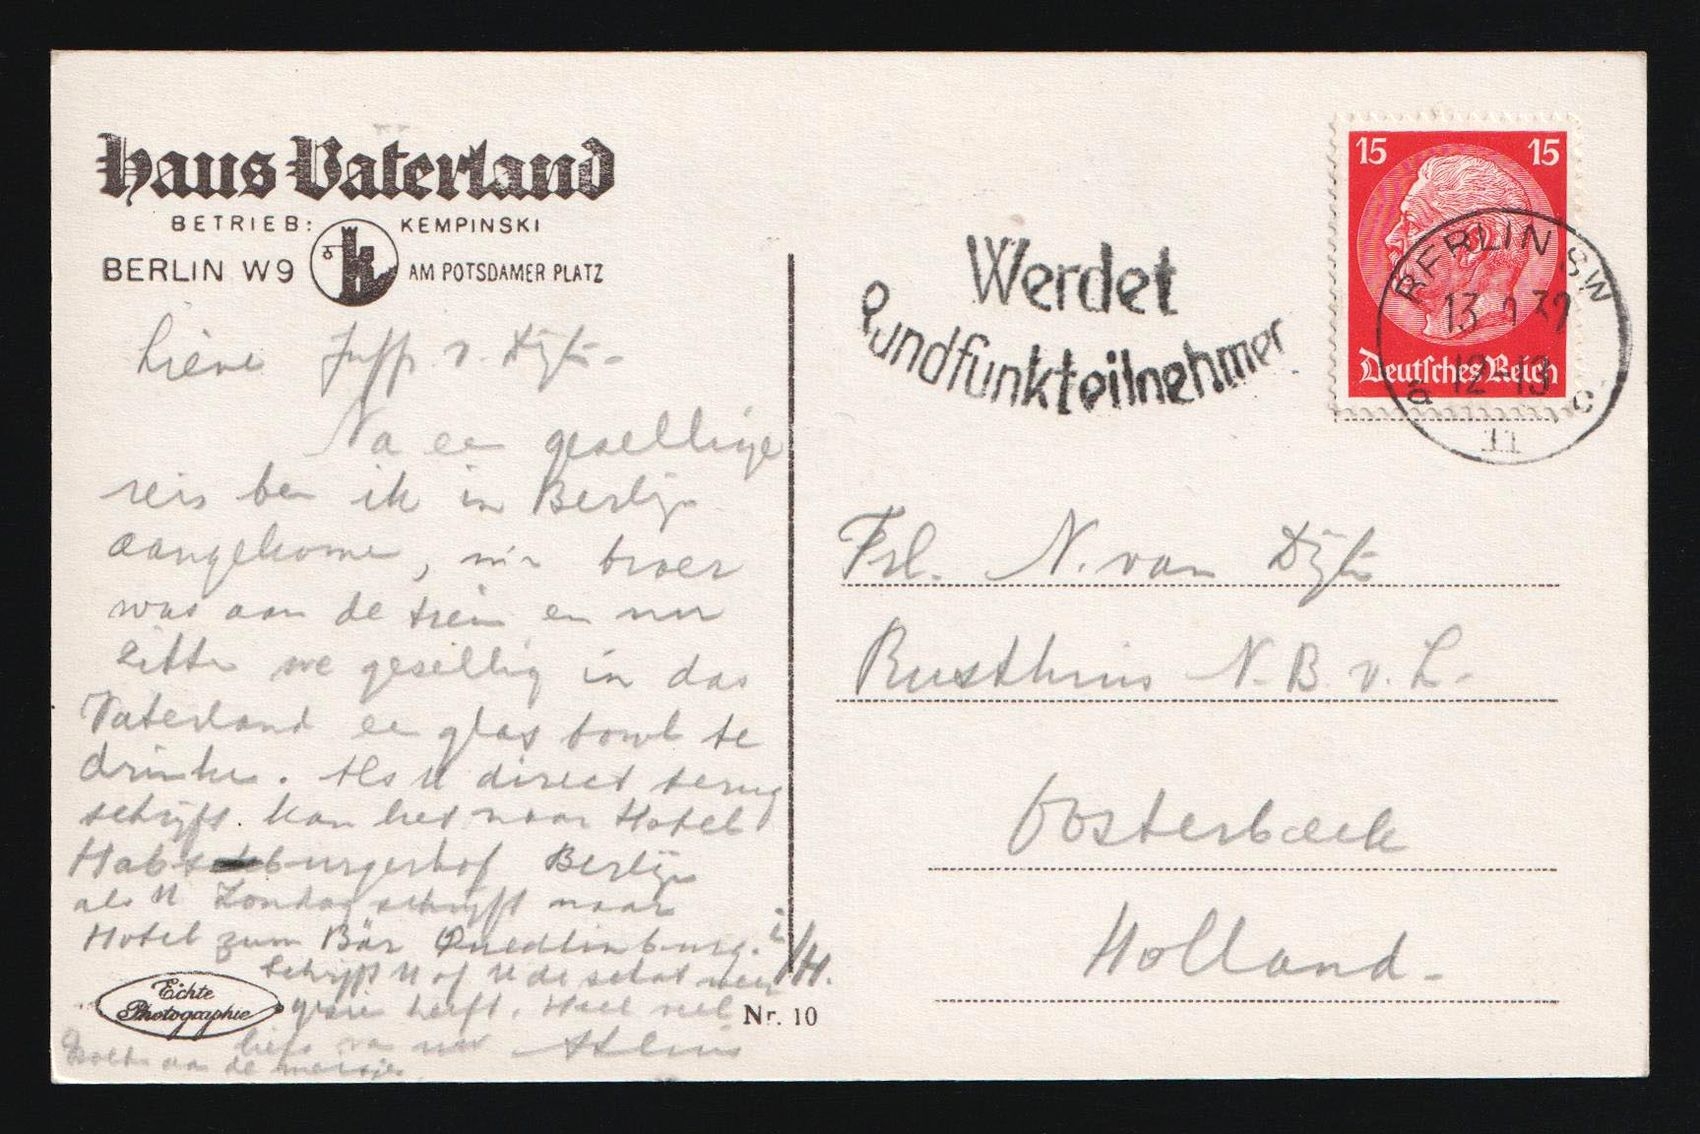 Haus Vaterland
BETRIEB: KEMPINSKI
BERLIN W9 AM POTSDAMER PLATZ
Lieve Juffr v. Dijk-
Na een gesellige
reis ben ik in Berlijn
aangekomen, m'n broer
was aan de trein en nu
zitten we gesellig in das
Vaterland een glas bowl te
drinken. Als U direct terug
schrijft. kan het naar Hotel
Habsburgerhof Berlijn
als U Zondag schrijft naar
Hotel zum Bär Quedlinburg. i/H.
Schrijft U of U de schat weer
heeft. Heel veel
liefs van uw
aan de meisjes
Echte
Photographie
Nr. 10
Werdet
Rundfunkteilnehmer
15 15
Deutsches Reich
BERLIN SW 11
13 12-13
a c
Frl. N. van Dijk
Rusthuis N. B. v. L.
Oosterbeek
Holland-